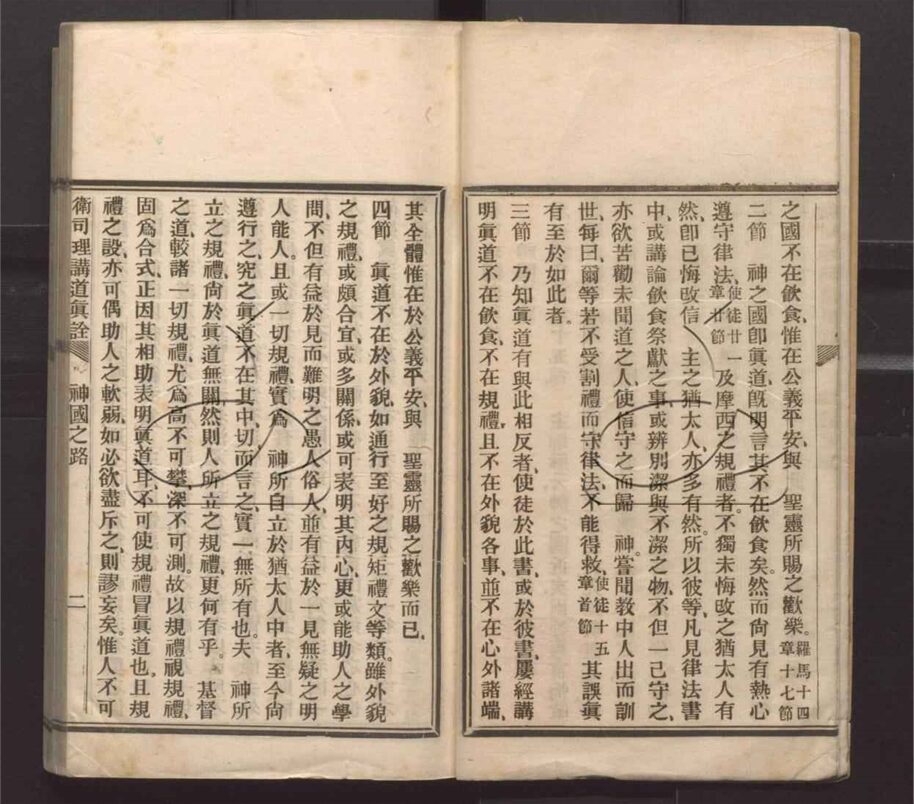 之國不在飲食、惟在公義平安、與　聖靈所賜之歡樂。羅馬十四章十七節
二節　神之國卽眞道、旣明言其不在飲食矣。然而尙見有熱心
遵守律法、使徒廿一章廿節及摩西之規禮者。不獨未悔改之猶太人有
然、卽已悔改信　主之猶太人、亦多有然。所以彼等、凡見律法書
中、或講論飲食祭獻之事、或辨別潔與不潔之物、不但一己守之、
亦欲苦勸未聞道之人、使信守之而歸　神。嘗聞教中人出而訓
世、每曰、爾等若不受割禮而守律法、不能得救、使徒十五章首節其誤眞
有至於如此者。
三節　乃知眞道有與此相反者、使徒於此書、或於彼書、屢經講
明眞道不在飲食、不在規禮、且不在外貌各事、並不在心外諸端、
其全體惟在於公義平安與　聖靈所賜之歡樂而已、
四節　眞道不在於外貌、如通行至好之規矩禮文等類。雖外貌
之規禮、或頗合宜、或多關係、或可表明其內心、更或能助人之學
問、不但有益於見而難明之愚人俗人、並有益於一見無疑之明
人能人、且或一切規禮、實爲　神所自立於猶太人中者、至今尙
遵行之、究之眞道不在其中、切而言之、實一無所有也。夫　神所
立之規禮、尙於眞道無關、然則人所立之規禮、更何有乎。　基督
之道、較諸一切規禮、尤爲高不可攀、深不可測。故以規禮視規禮、
固爲合式、正因其相助表明眞道耳、不可使規禮冒眞道也、且規
禮之設、亦可偶助人之軟弱、如必欲盡斥之、則謬妄矣。惟人不可
衛司理講道眞詮　神國之路　二